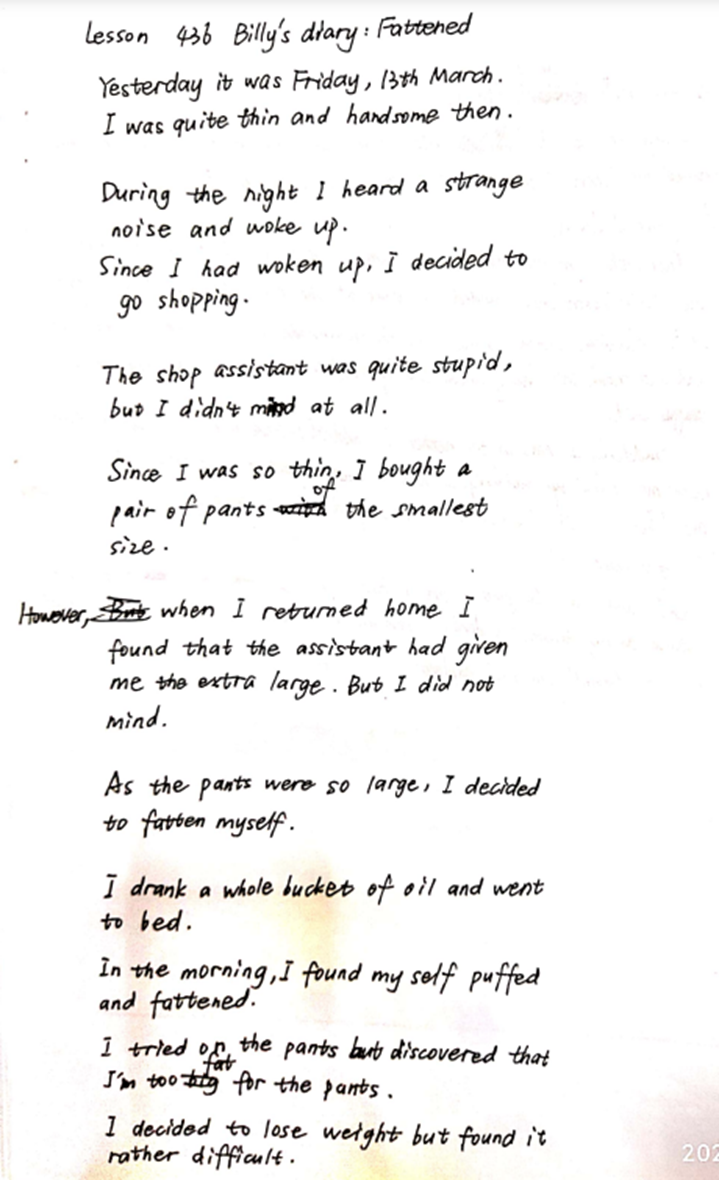 Lesson 43b Billy's diary: Fattened
Yesterday it was Friday, 13th March.
I was quite thin and handsome then.
During the night I heard a strange
noise and woke up.
Since I had woken up, I decided to
go shopping.
The shop assistant was quite stupid,
but I didn't mind at all.
Since I was so thin, I bought a
pair of pants of the smallest
size.
However, when I returned home I
found that the assistant had given
me the extra large. But I did not
mind.
As the pants were so large, I decided
to fatten myself.
I drank a whole bucket of oil and went
to bed.
In the morning, I found my self puffed
and fattened.
I tried on the pants but discovered that
I'm too fat for the pants.
I decided to lose weight but found it
rather difficult.
202